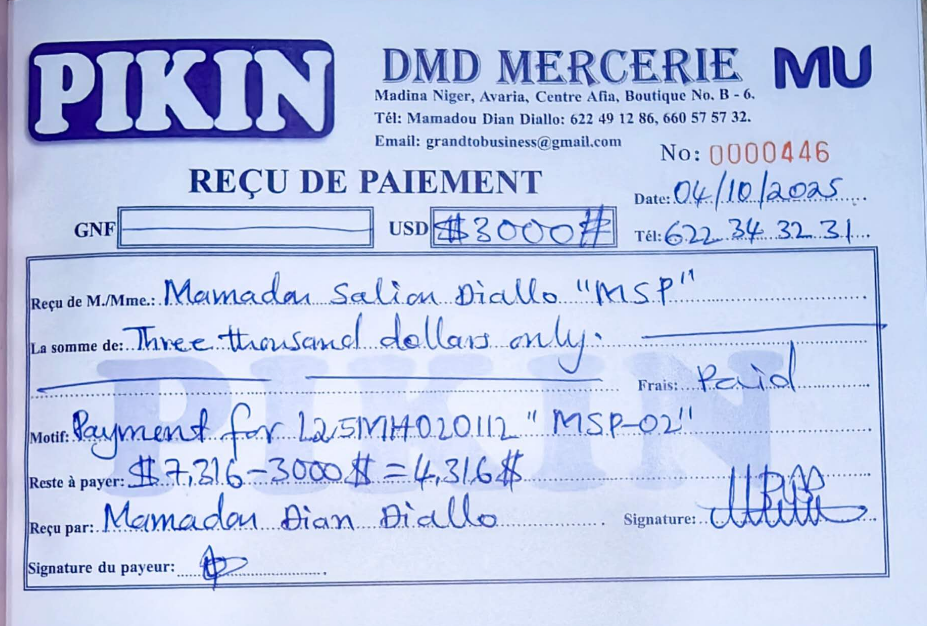 PIKIN
DMD MERCERIE MU
Madina Niger, Avaria, Centre Afia, Boutique No. B - 6.
Tél: Mamadou Dian Diallo: 622 49 12 86, 660 57 57 32.
Email: grandtobusiness@gmail.com
No: 0000446
REÇU DE PAIEMENT
Date: 04/10/2025
GNF USD $3000#
Tél: 622 34 32 31
Reçu de M./Mme.: Mamadou Saliou Diallo "MSP"
La somme de: Three thousand dollars only.
Frais: Paid
Motif: Payment for L25MH020112 "MSP-02"
Reste à payer: $7,316-3000$=4,316$
Reçu par: Mamadou Dian Diallo Signature:
Signature du payeur:
PIKIN